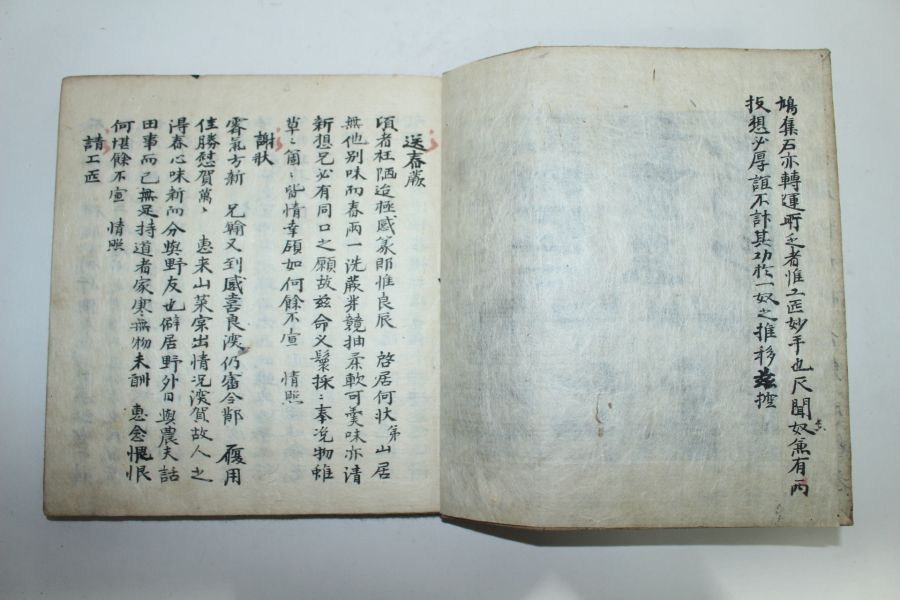 鳩集石亦轉運所乏者惟工匠妙手也尺聞奴兼有兩
技想必厚誼不計其功於一奴之推移玆控
送春蕨
頃者枉陋迨極感篆卽惟良辰 啓居何狀第山居
無他別味而春雨一洗蕨芽競抽柔軟可羹味亦清
新想兄必有同口之願故玆命乂鬟採〻奉浼物雖
草〻箇〻皆情幸領如何餘不宣 情照
謝狀
霽氣方新 兄翰又到感喜良深仍審今 履用
佳勝慰賀萬〻 惠來山菜案出情况深賀故人之
得春心味新而分與野友也僻居野外日與農夫話
田事而已無足持道者家寒無物未酬 惠念愧恨
何堪餘不宣 情照
請工匠